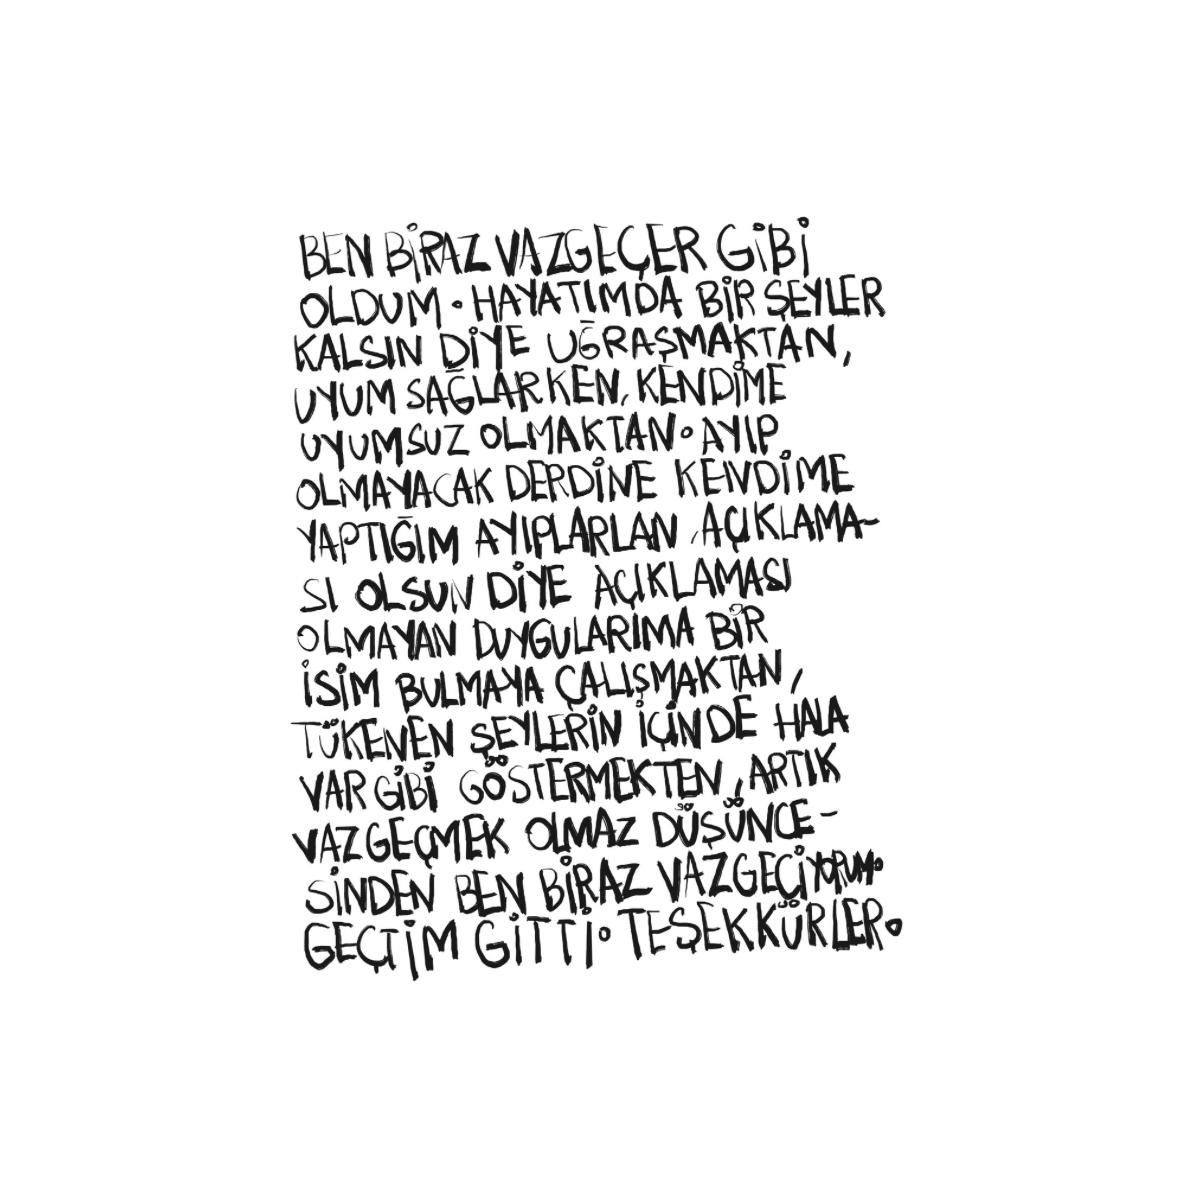 BEN BİRAZ VAZGEÇER GİBİ
OLDUM. HAYATIMDA BİR ŞEYLER
KALSIN DİYE UĞRAŞMAKTAN,
UYUM SAĞLARKEN, KENDİME
UYUMSUZ OLMAKTAN. AYIP
OLMAYACAK DERDİNE KENDİME
YAPTIĞIM AYIPLARLAN, AÇIKLAMA-
SI OLSUN DİYE AÇIKLAMASI
OLMAYAN DUYGULARIMA BİR
İSİM BULMAYA ÇALIŞMAKTAN,
TÜKENEN ŞEYLERİN İÇİNDE HALA
VAR GİBİ GÖSTERMEKTEN, ARTIK
VAZGEÇMEK OLMAZ DÜŞÜNCE-
SİNDEN BEN BİRAZ VAZGEÇİYORUM.
GEÇTİM GİTTİ. TEŞEKKÜRLER.